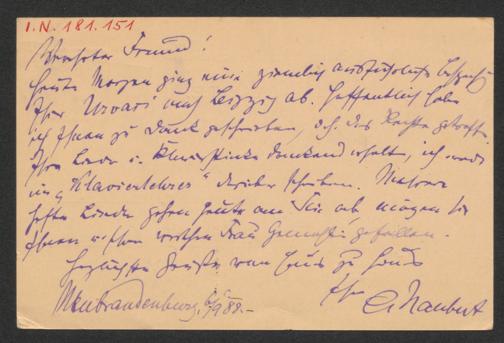 I.N. 181.151
Verehrter Freund!
Heute Morgen ging eine ziemlich ausführliche Besprech.
Ihrer Urvasi nach Leipzig ab. Hoffentlich habe
ich Ihnen zu Dank geschrieben, d.h. das Rechte getroffen.
Ihre Lieder u. Klavierstücke dankend erhalten, ich werde
im "Klavierlehrer" darüber schreiben. Mehrere
Hefte Lieder gehen heute an Sie ab, mögen sie
Ihnen u. Ihrer werthen Frau Gemahlin gefallen.
Herzlichste Grüße von Haus zu Haus
Ihr
Neubrandenburg, 9 88.- A. Naubert